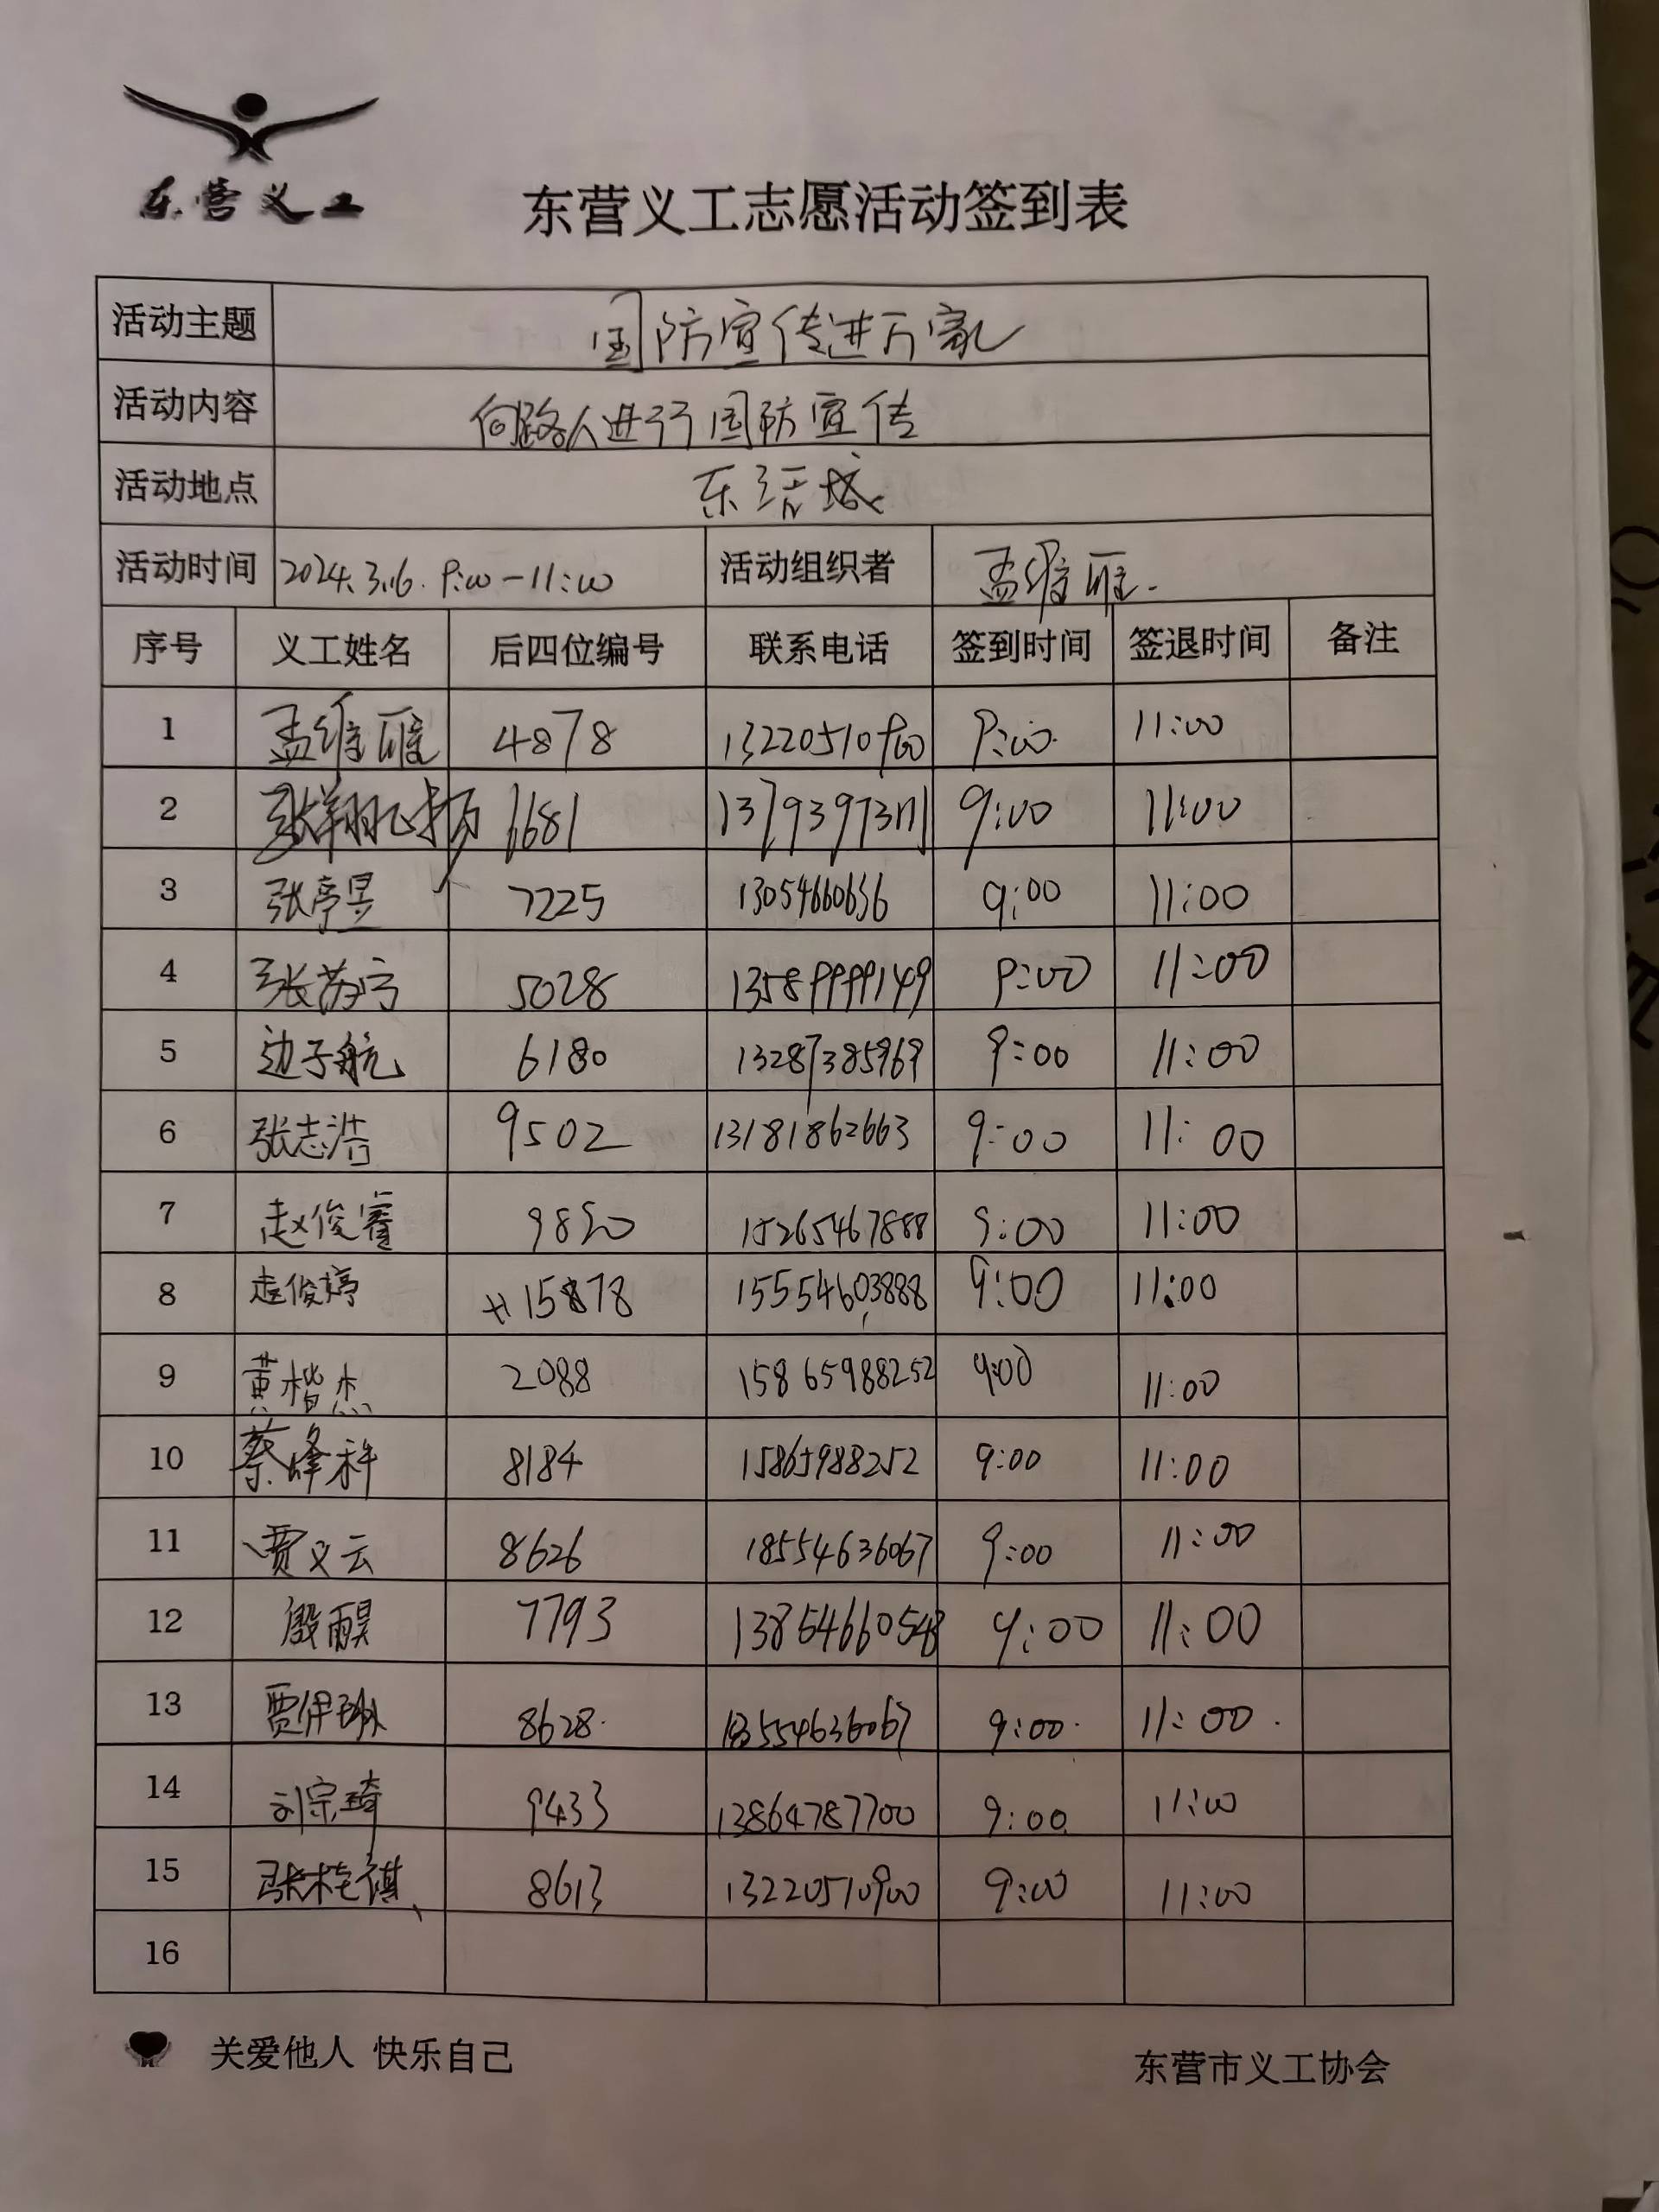 东营义工
东营义工志愿活动签到表
活动主题 国防宣传进万家
活动内容 向路人进行国防宣传
活动地点 东 城
活动时间 2024.3.16. 9:00-11:00 活动组织者 孟维雁.
序号 义工姓名 后四位编号 联系电话 签到时间 签退时间 备注
1 孟维雁 4878 13220510900 9:00 11:00
2 张翔飞扬 6681 9:00 11:00
3 张亭昱 7225 13054660636 9:00 11:00
4 张 5028 13589999149 9:00 11:00
5 边子航 6180 13287385969 9:00 11:00
6 张志浩 9502 13181862663 9:00 11:00
7 赵俊睿 9850 15265467888 9:00 11:00
8 赵俊婷 15878 15554603888 9:00 11:00
9 黄楷杰 2088 15865988252 9:00 11:00
10 蔡峰科 8184 15865988252 9:00 11:00
11 贾义云 8626 18554636067 9:00 11:00
12 殷雨昊 7793 13854660548 9:00 11:00
13 贾伊琳 8628. 18554636067 9:00. 11:00.
14 刘宗琦 9433 13864787700 9:00 11:00
15 张桂祺 8613 13220510900 9:00 11:00
16
关爱他人 快乐自己
东营市义工协会